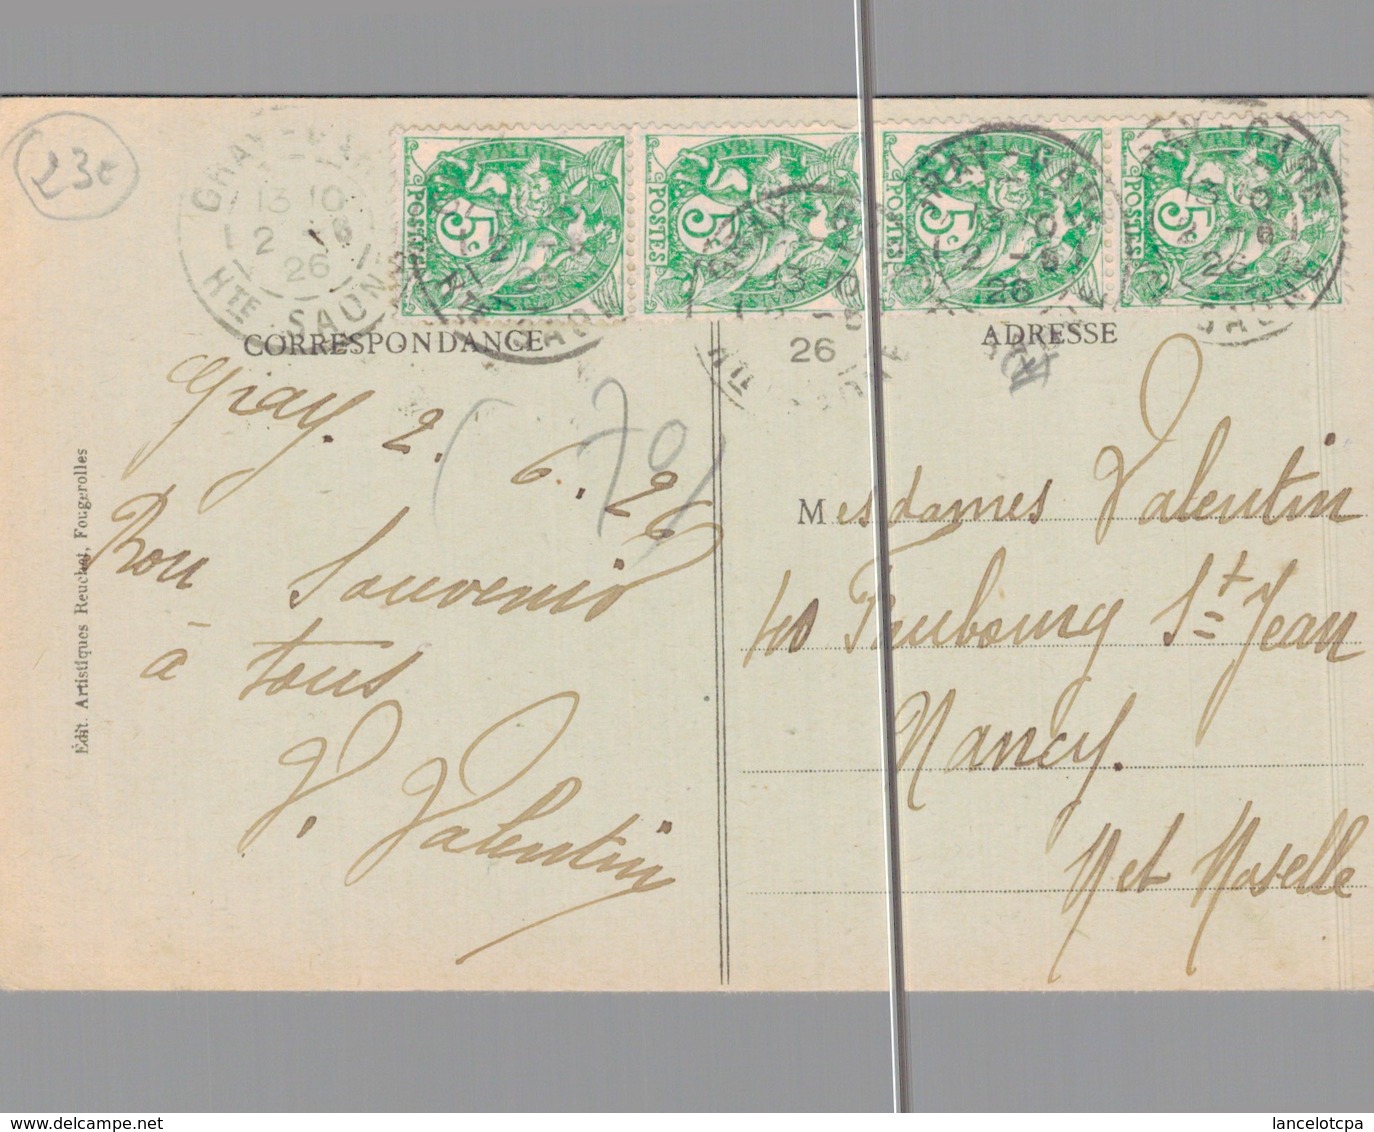 23e
GRAY-GARE
13 10
2 - 6
26
Hte SAONE
POSTES 5c
POSTES 5c
POSTES 5c
POSTES 5c
CORRESPONDANCE
ADRESSE
Gray. 2. 6. 26
(70)
Bon Souvenir
à tous
V. Valentin
Mesdames Valentin
40 Faubourg St Jean
Nancy.
M et Moselle
Édit. Artistiques Reuchet, Fougerolles
www.delcampe.net
lancelotcpa